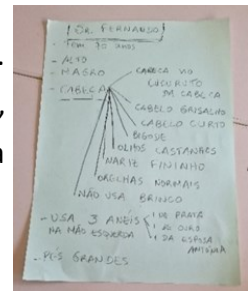 .
,
! DR. FERNANDO!
- TEM 70 ANOS
- ALTO
- MAGRO
- CABEÇA
CARECA NO
COCURUTO
DA CABEÇA
CABELO GRISALHO
CABELO CURTO
BIGODE
OLHOS CASTANHOS
NARIZ FININHO
ORELHAS NORMAIS
NÃO USA BRINCO
- USA 3 ANEIS
NA MÃO ESQUERDA
1 DE PRATA
1 DE OURO
1 DA ESPOSA
ANTÔNIA
- PÉS GRANDES